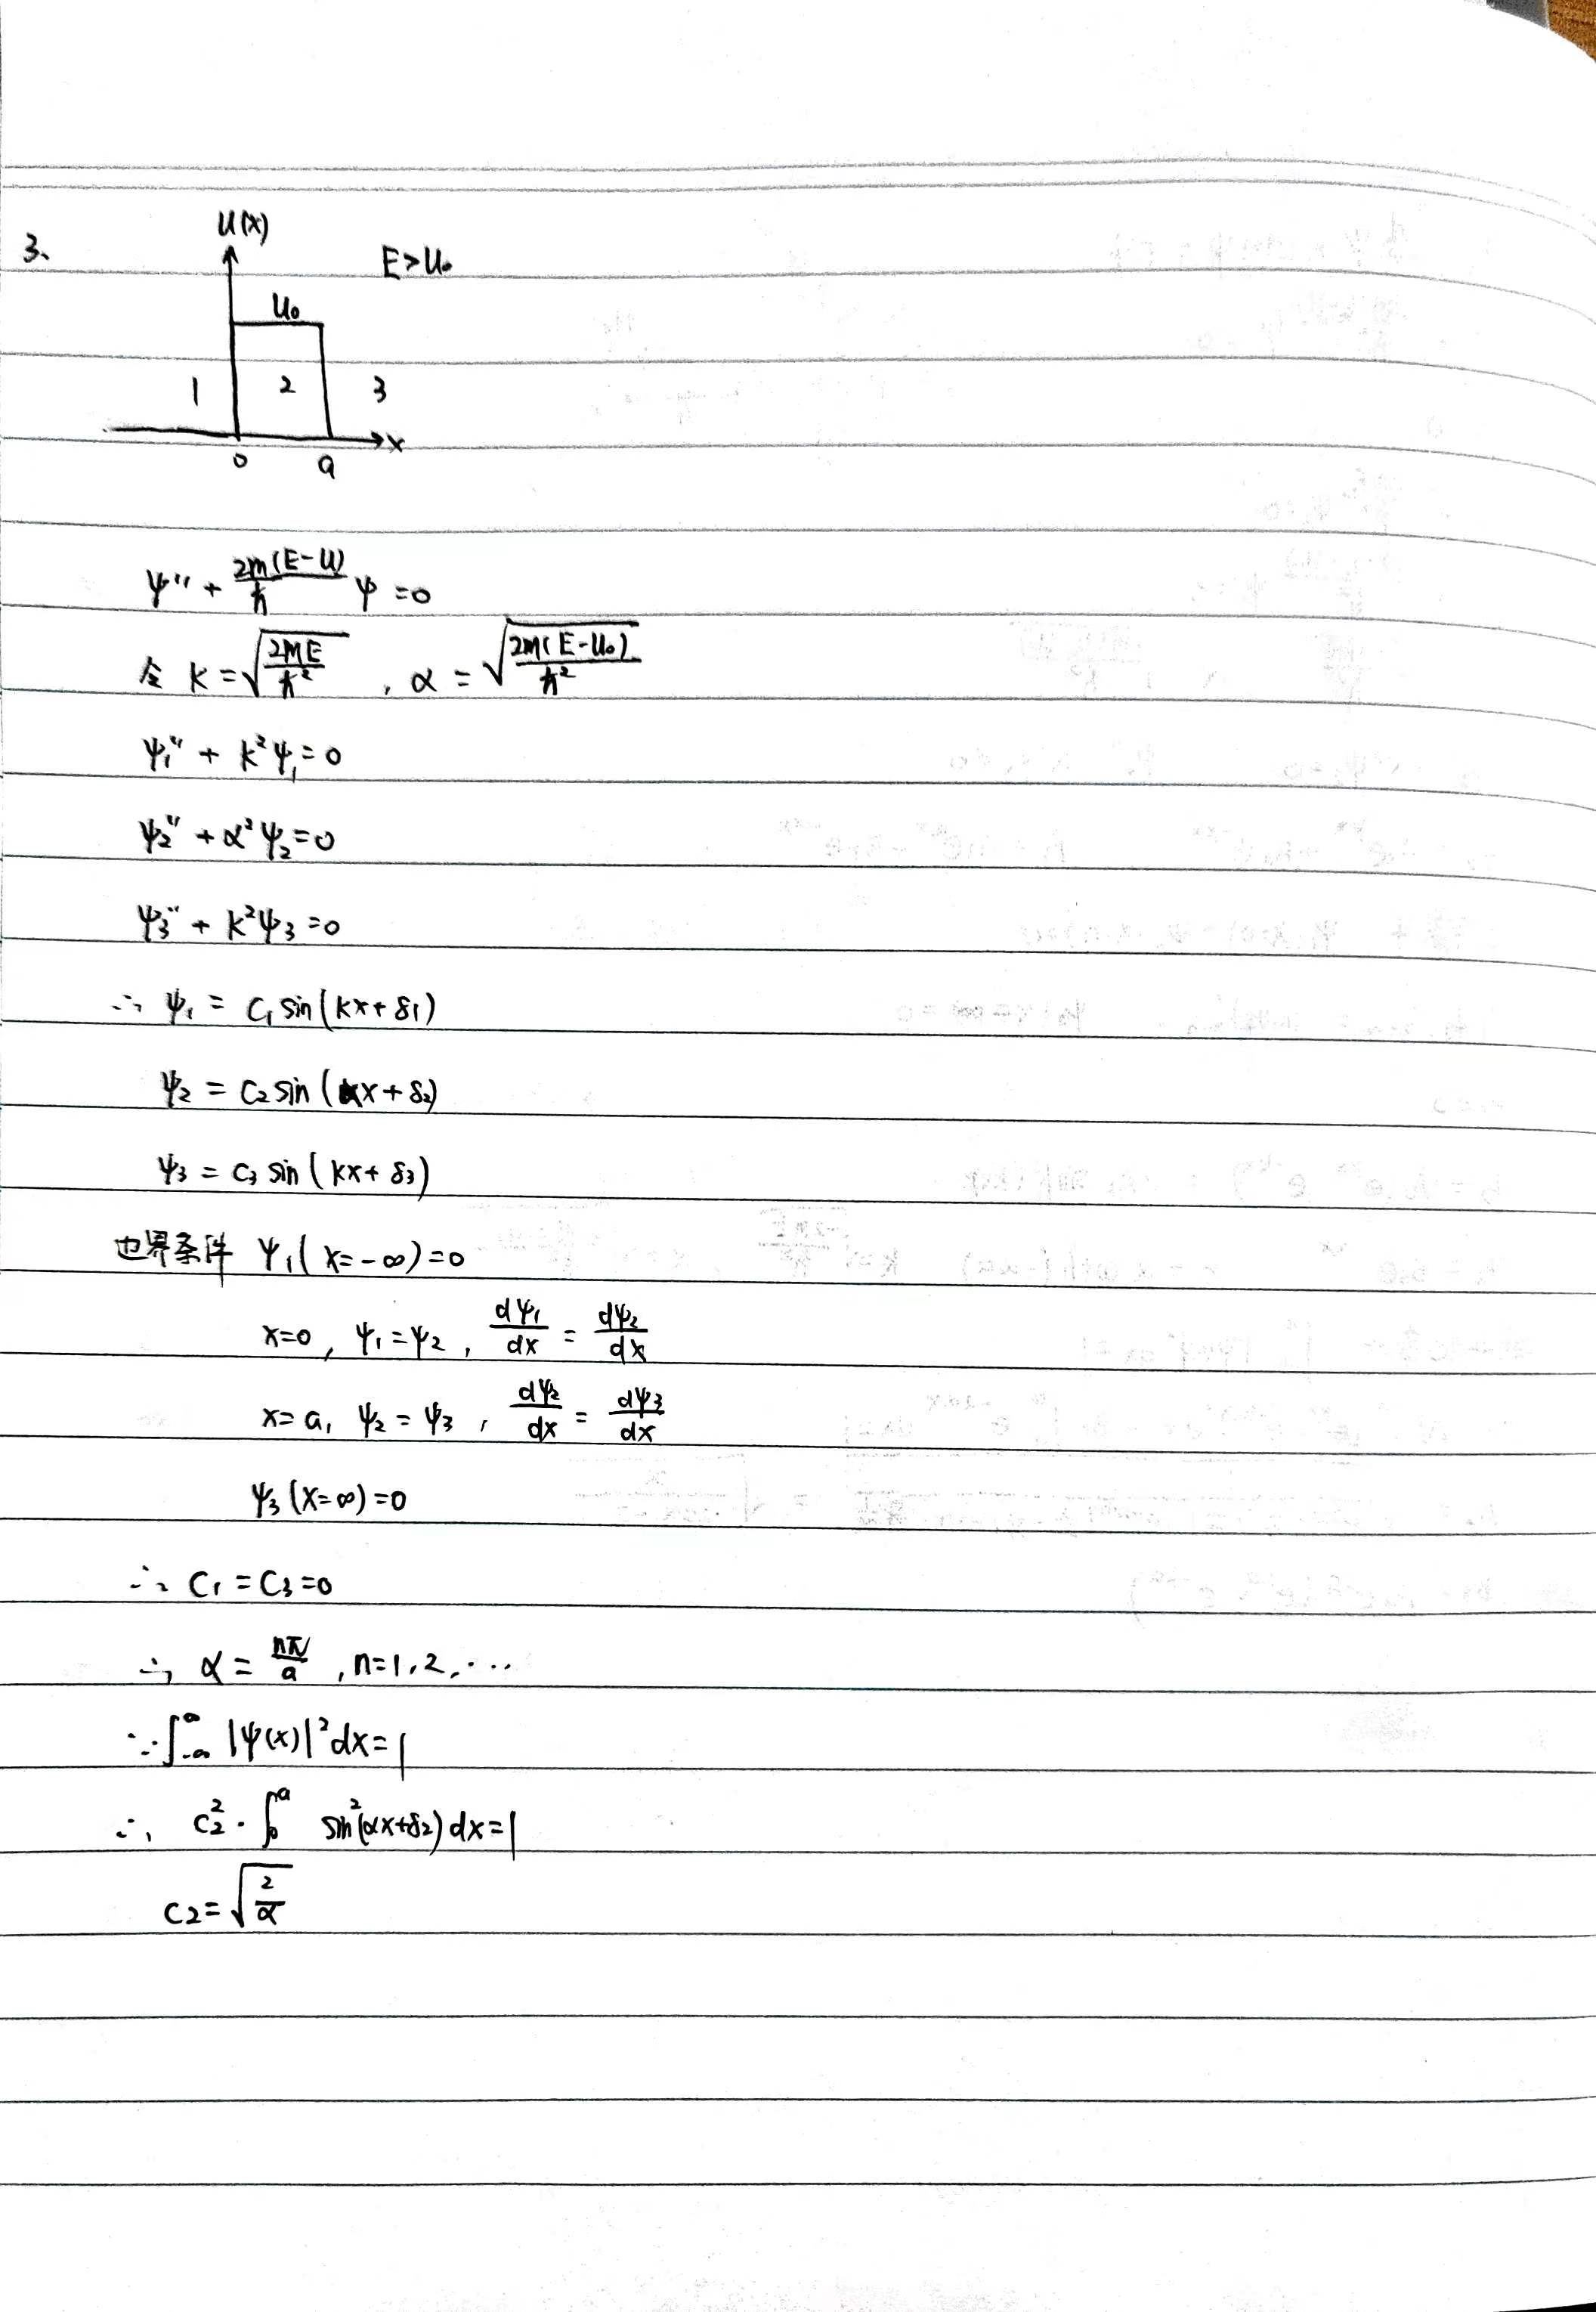 3、
U(x)
E>U₀
U₀
1 2 3
x
0 a
ψ'' + 2m(E-U)/ħ ψ =0
令 k=√(2mE/ħ²) , α = √(2m(E-U₀)/ħ²)
ψ₁'' + k²ψ₁=0
ψ₂'' + α²ψ₂=0
ψ₃'' + k²ψ₃=0
∴ ψ₁ = C₁sin(kx+δ₁)
ψ₂ = C₂sin(αx+δ₂)
ψ₃ = C₃sin(kx+δ₃)
边界条件 ψ₁(x=-∞)=0
x=0, ψ₁=ψ₂, dψ₁/dx = dψ₂/dx
x=a, ψ₂=ψ₃, dψ₂/dx = dψ₃/dx
ψ₃(x=∞)=0
∴ C₁=C₃=0
∴ α = nπ/a , n=1,2,···
∵ ∫_{-∞}^{∞} |ψ(x)|²dx=1
∴ C₂²·∫₀ᵃ sin²(αx+δ₂)dx=1
C₂=√(2/α)